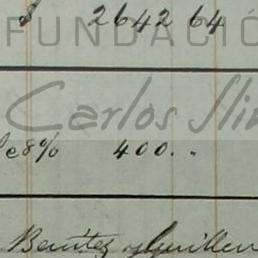 $ 2642 64
FUNDACIÓ
Carlos Slim
de 8% 400 . "
Benítez y Guillen